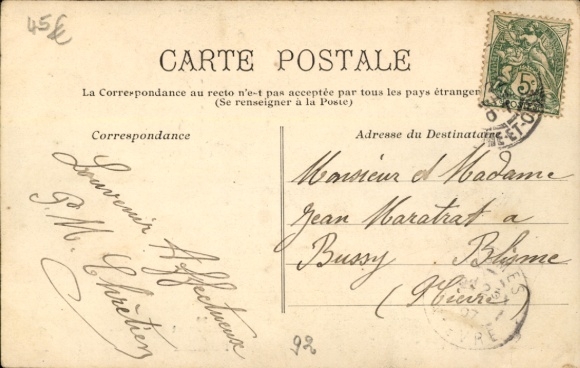 45€
CARTE POSTALE
La Correspondance au recto n'est pas acceptée par tous les pays étranger
(Se renseigner à la Poste)
Correspondance
Adresse du Destinataire
Souvenir Affectueux
P. M. Chrétien
Monsieur et Madame
Jean Maratrat a
Bussy Blisme
(Nièvre)
92
5
ET-O
NIEVRE